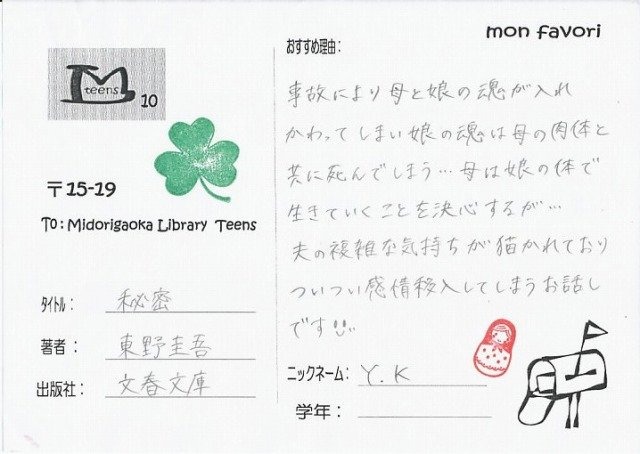 mon favori
TM
teens
10
〒15-19
To: Midorigaoka Library Teens
タイトル: 秘密
著者: 東野圭吾
出版社: 文春文庫
おすすめ理由:
事故により母と娘の魂が入れ
かわってしまい娘の魂は母の肉体と
共に死んでしまう…母は娘の体で
生きていくことを決心するが…
夫の複雑な気持ちが描かれており
ついつい感情移入してしまうお話し
です
ニックネーム: Y.K
学年: